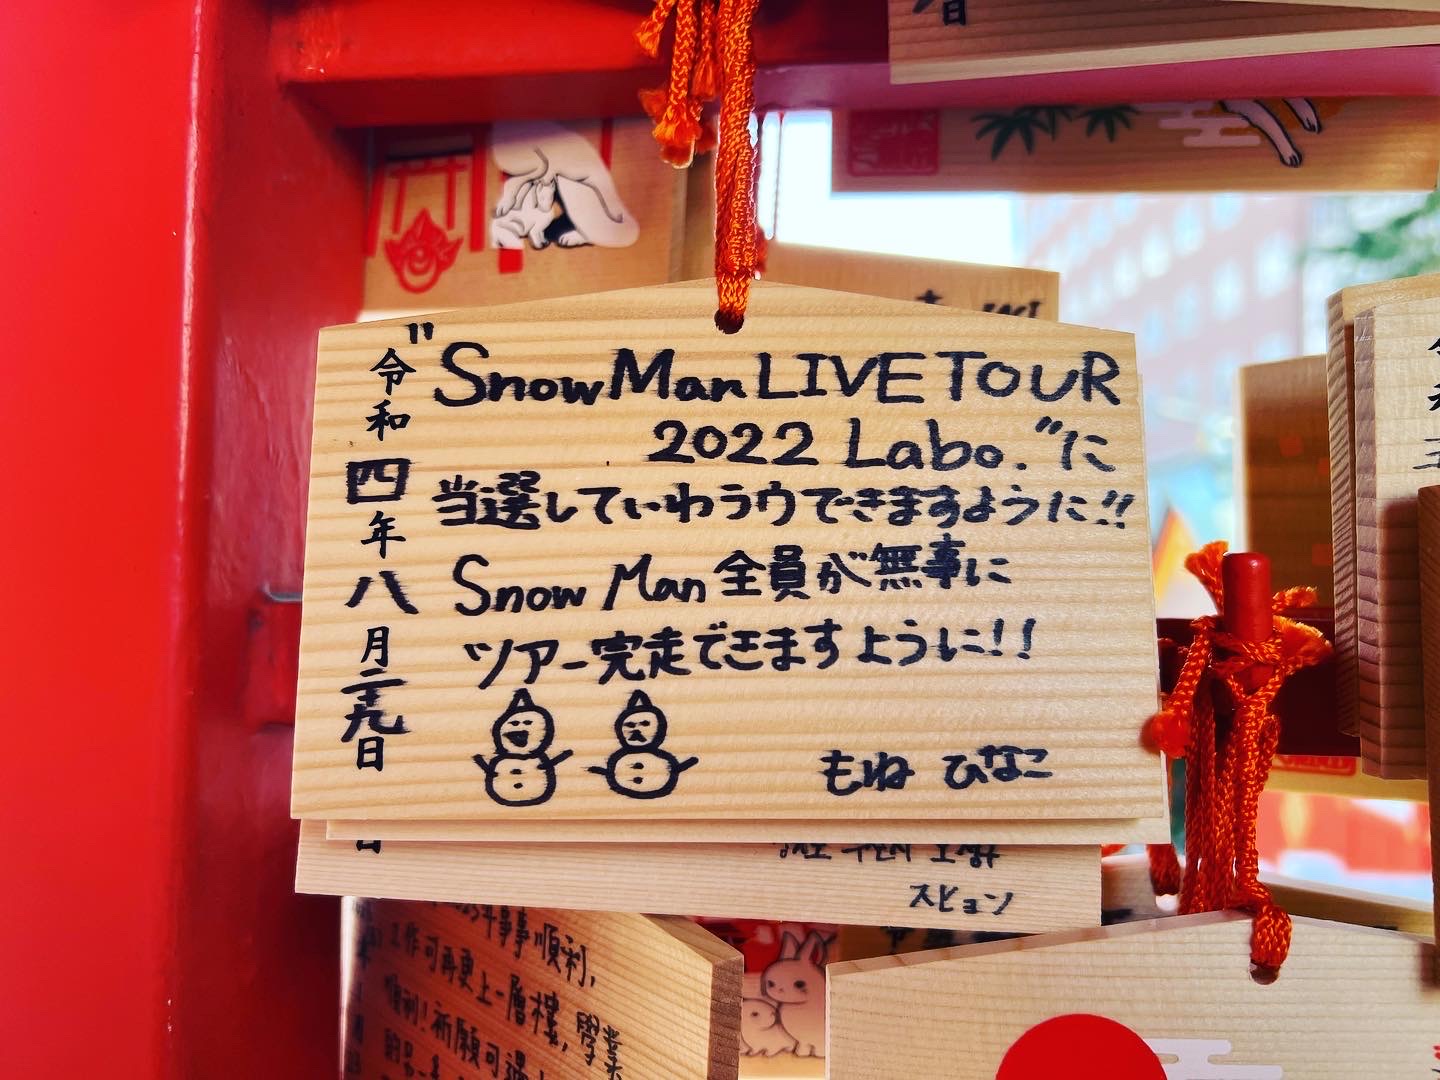 "Snow Man LIVE TOUR
2022 Labo."に
当選していわラウできますように!!
Snow Man 全員が無事に
ツアー完走できますように!!
もね ひなこ
令和四年八月二十九日
スヒョン
事事順利,
工作可再更上一層樓,學業
順利!祈願可遇